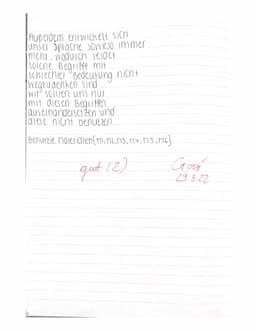 Außerdem entwickelt sich
unser Sprache sowieso immer
mehr, wodurch leider
solche Begriffe mit
schlechter Bedeutung nicht
wegzudenken sind.
Wir sollten uns nur
mit diesen Begriffen
auseinandersetzen und
diese nicht benutzen.
Benutzte Materialien (M1, M2, M3, M4, M5, M6)
gut (2)
29.3.22